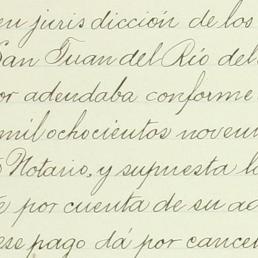 en jurisdicción de los
San Juan del Río del
or adendaba conforme
mil ochocientos noven
Notario, y supuesta la
por cuenta de su ad
ese pago dá por cancel